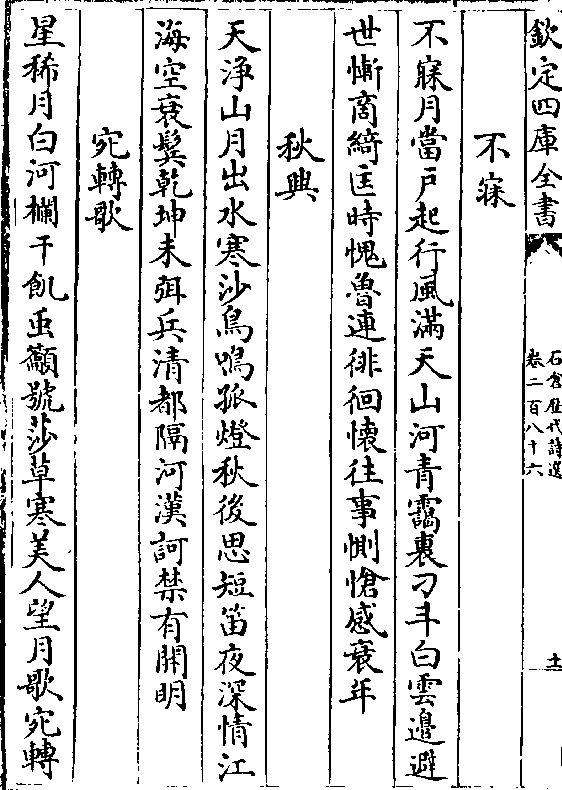 欽定四庫全書
石倉歷代詩選
卷二百八十六
十一
不寐
不寐月當戸起行風滿天山河青靄裏刁斗白雲邉避
世慚商綺匡時愧魯連徘徊懐往事惻愴感衰年
秋興
天浄山月出水寒沙鳥鳴孤燈秋後思短笛夜深情江
海空衰鬂乾坤未弭兵清都隔河漢訶禁有開明
宛轉歌
星稀月白河欄干飢䖝籲號莎草寒美人望月歌宛轉